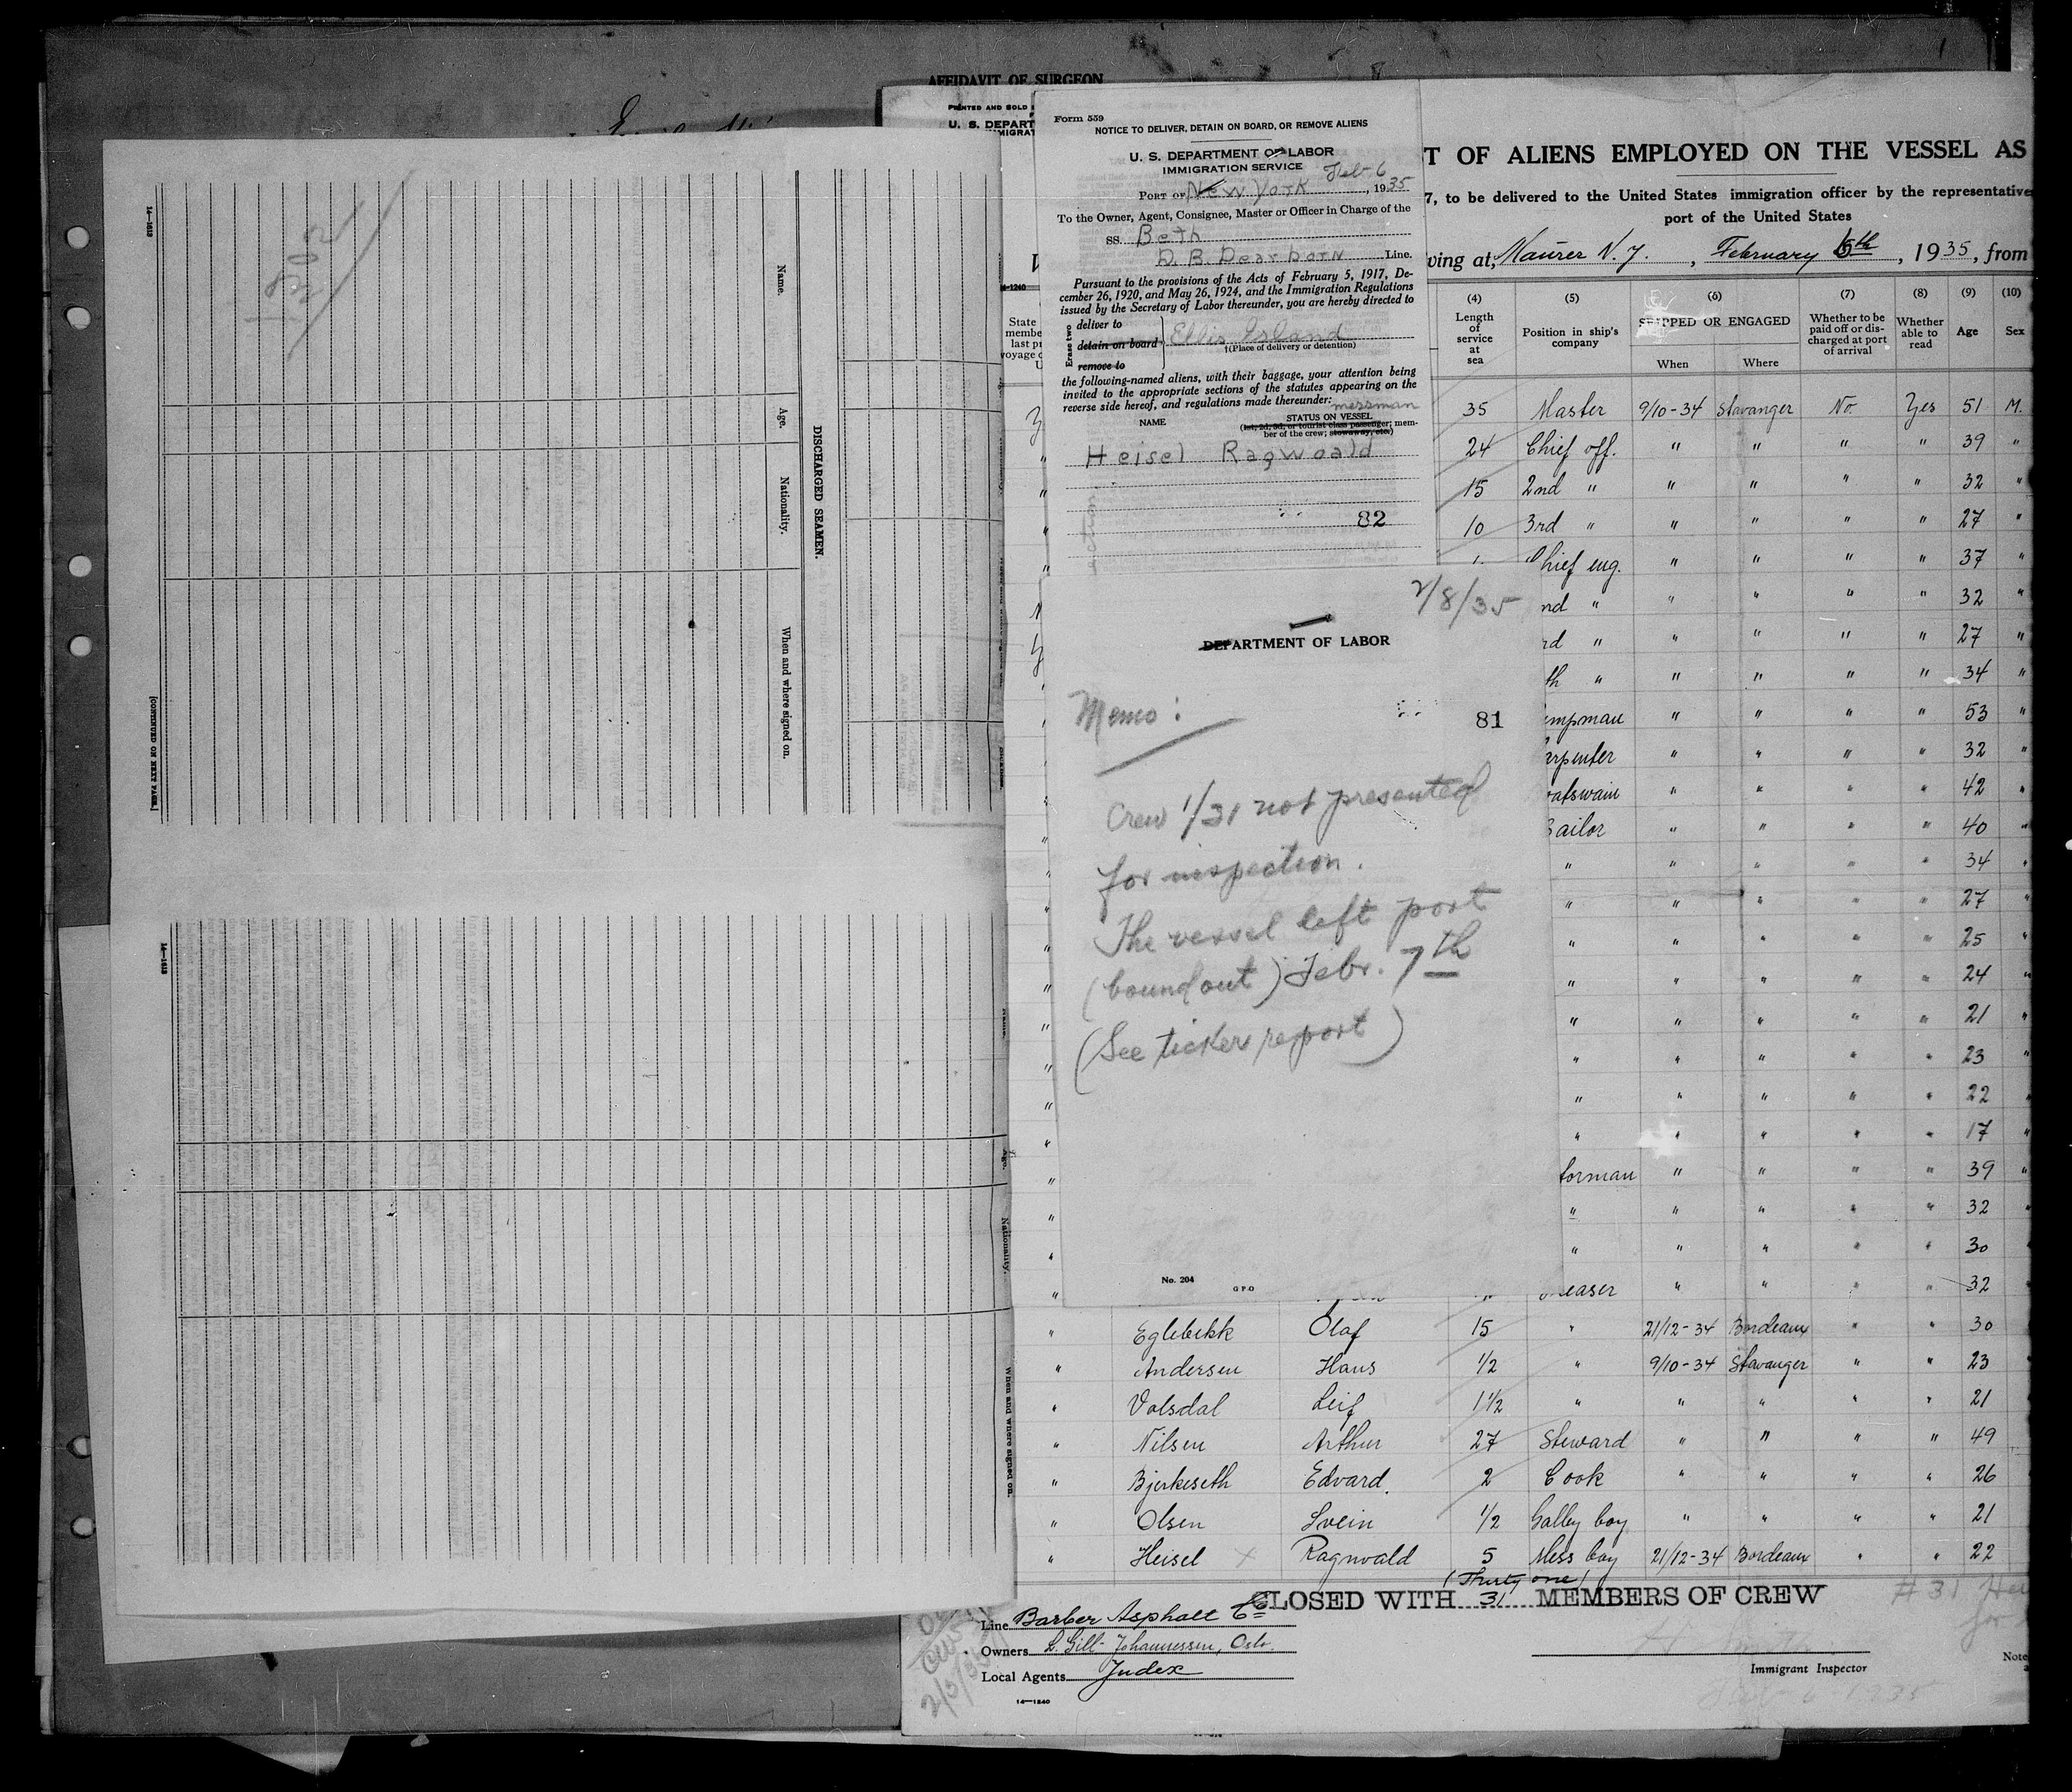 AFFIDAVIT OF SURGEON
PRINTED AND SOLD
U. S. DEPART
IMMIGRAT
14—1240
State
membe
last pr
voyage o
14—1613
1302
Name.
Age.
Nationality.
When and where signed on.
DISCHARGED SEAMEN.
[CONTINUED ON NEXT PAGE.]
14—1613
Age.
Nationality.
When and where signed on.
Form 559
NOTICE TO DELIVER, DETAIN ON BOARD, OR REMOVE ALIENS
U. S. DEPARTMENT OF LABOR
IMMIGRATION SERVICE
PORT OF New York Feb 6, 1935
To the Owner, Agent, Consignee, Master or Officer in Charge of the
SS. Beth
D. B. Dearborn Line.
Pursuant to the provisions of the Acts of February 5, 1917, De-
cember 26, 1920, and May 26, 1924, and the Immigration Regulations
issued by the Secretary of Labor thereunder, you are hereby directed to
Erase two
deliver to
detain on board
remove to
Ellis Island
†(Place of delivery or detention)
the following-named aliens, with their baggage, your attention being
invited to the appropriate sections of the statutes appearing on the
reverse side hereof, and regulations made thereunder:
messman
NAME
STATUS ON VESSEL
(1st, 2d, 3d, or tourist class passenger; mem-
ber of the crew; stowaway, etc.)
Heisel Ragwoald
82
2/8/35
DEPARTMENT OF LABOR
Memo:
81
Crew 1/31 not presented
for inspection.
The vessel left port
(bound out) Febr. 7th
(See tickers report)
No. 204
GPO
T OF ALIENS EMPLOYED ON THE VESSEL AS
7, to be delivered to the United States immigration officer by the representative
port of the United States
ving at, Maurer N. J., February 6th, 1935, from
(4) (5) (6) (7) (8) (9) (10)
Length of service at sea
Position in ship's company
SHIPPED OR ENGAGED
When Where
Whether to be paid off or dis-charged at port of arrival
Whether able to read
Age
Sex
35 Master 9/10-34 Stavanger No. Yes 51 M.
24 Chief off. " " " " 39 "
15 2nd " " " " " 32 "
10 3rd " " " " " 27 "
Chief eng. " " " " 37 "
nd " " " " " 32 "
rd " " " " " 27 "
th " " " " " 34 "
mpman " " " " 53 "
arpenter " " " " 32 "
oatswain " " " " 42 "
Sailor " " " " 40 "
" " " " " 34 "
" " " " " 27 "
" " " " " 25 "
" " " " " 24 "
" " " " " 21 "
" " " " " 23 "
" " " " " 22 "
" " " " " 17 "
torman " " " " 39 "
" " " " " 32 "
" " " " " 30
easer " " " " 32
" Eglebekk Olaf 15 " 21/12-34 Bordeaux " " 30
" Andersen Hans 1/2 " 9/10-34 Stavanger " " 23
" Valsdal Leif 1 1/2 " " " " " 21
" Nilsen Arthur 27 Steward " " " " 49
" Bjerkeseth Edvard. 2 Cook " " " " 26
" Olsen Svein 1/2 Galley boy " " " " 21
" Heisel x Ragnvald 5 Mess boy 21/12-34 Bordeaux " " 22
(Thirty one)
CLOSED WITH 31 MEMBERS OF CREW
# 31
for
Line Barber Asphalt Co
Owners L. Gill-Johannessen, Oslo.
Local Agents Judex
14—1240
2/5/35
Immigrant Inspector
Note
Feb 6 1935